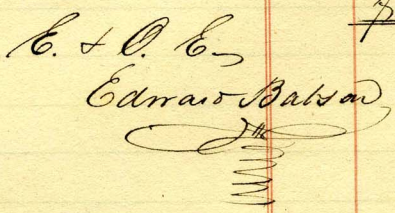 E. & O. E.
Edward Babson